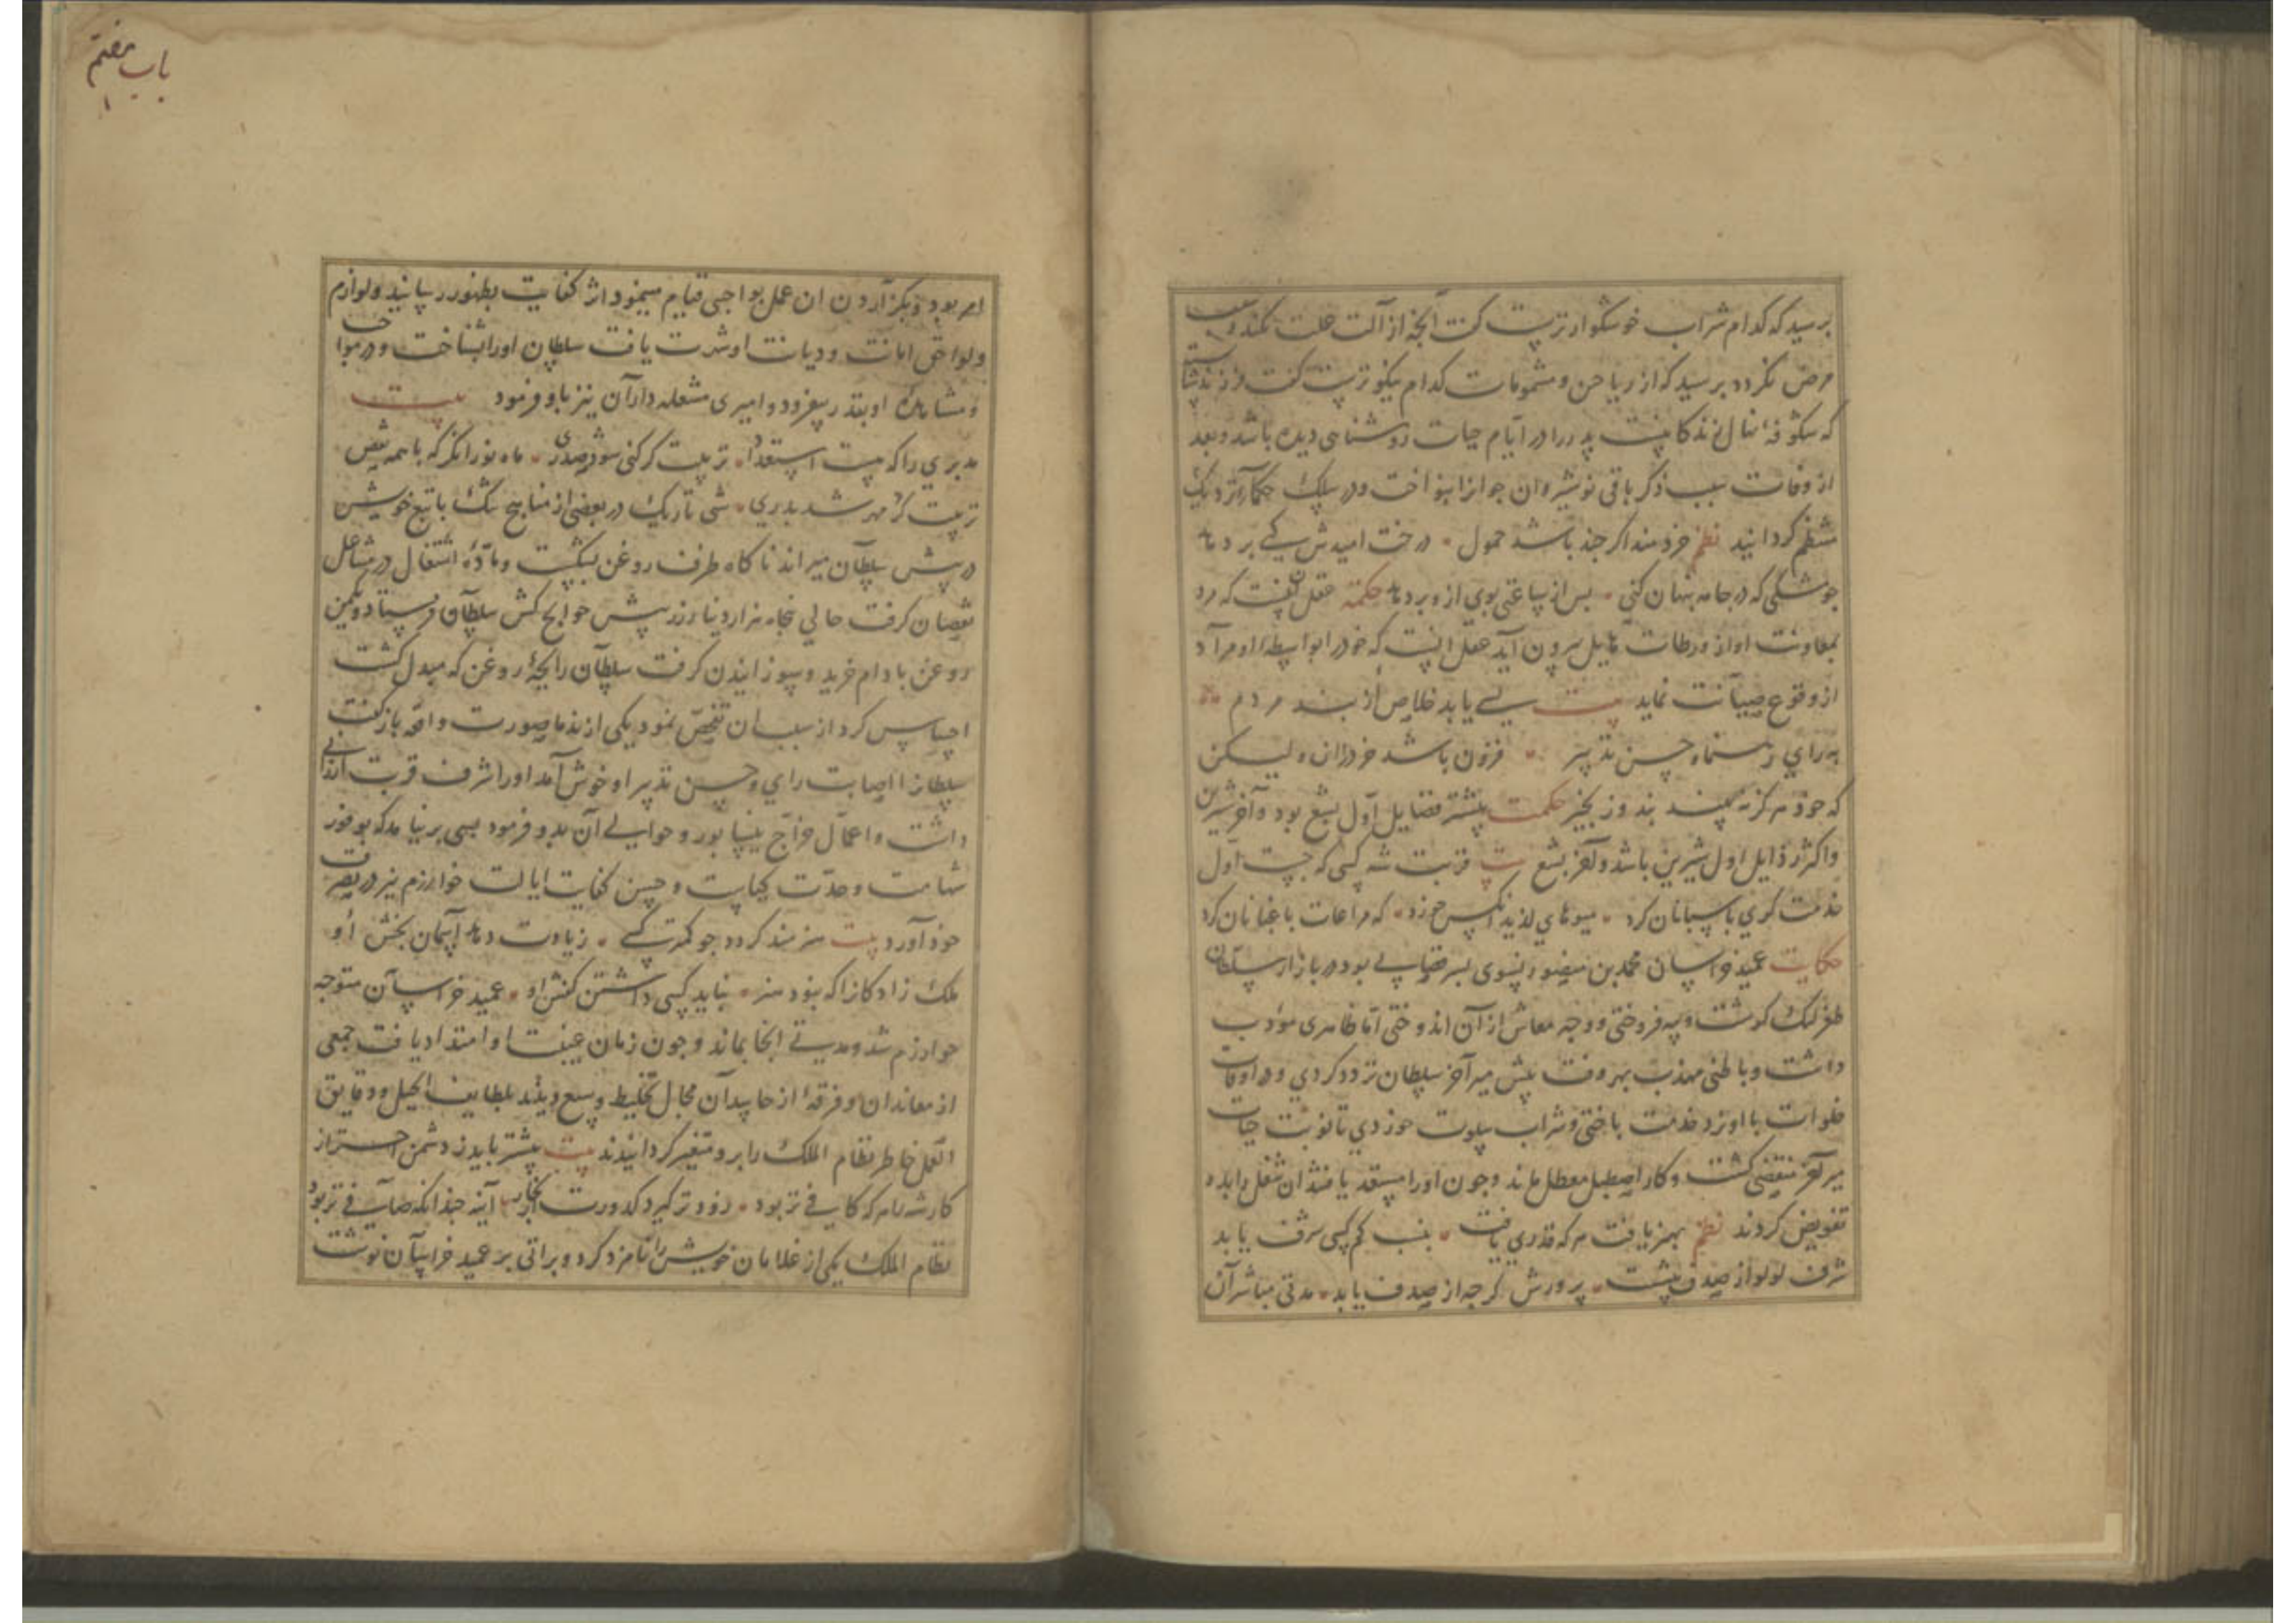 برسید که کدام شراب خوشکوارترست کفت آنجه از آلت علت نکند و
مرض نکردد برسید که از ریاحین و مشمومات کدام نیکوترست کفت فرزند
که شکوفهٔ نهال زندکانیست پدر را در ایام حیات روشنایی دیده باشد و بعد
از وفات سبب ذکر باقی نوشیروان جوانرا بنواخت و در سلک حکماء
منتظم کردانید نظم خردمند اکر جند باشد خمول درخت امیدش کسی بر دهد
جو مشکی که در جامه بنهان کنی بس از ساعتی بوی از وبر دهد حکمة عقل آن نیست که مرد
بمعاونت او از ورطات هایل بیرون آید عقل آنست که خود را بواسطهٔ او مر آد
از وقوع صیانت نماید بیت بسی یابد خلاص از بند مردم
به رای رهنما و حسن تدبیر فزون باشد خرد زان و لیکن
که خود هرکز نه بیند بند و زنجیر حکمت بیشتر فضایل اول بشع بود و آخر شیرین
و اکثر رذایل اول شیرین باشد و آخر بشع بیت قربت شه کسی که جست اول
خدمت کری باسبانان کرد میوهای لذیذ آنکس خورد که مراعات باغبانان کرد
حکایت عمید خراسان محمد بن منصور نسوی بسر قصابی بود در بازار سلطان
طغرلبک کوشت و پیه فروختی و وجه معاش از آن اندوختی اما ظاهری مؤدب
داشت و باطنی مهذب بهر وقت پیش میرآخر سلطان تردد کردی و در اوقات
خلوات با او نرد خدمت باختی و شراب سلوت خوردی تا نوبت حیات
میرآخر منقضی کشت و کار اصطبل معطل ماند و جون اورا مستعد یافتند آن شغل را بدو
تفویض کردند نظم بهنر یافت هرکه قدری یافت بنسب کم کسی شرف یابد
شرف لولو از صدف نیست پرورش کرجه از صدف یابد مدتی مباشر آن
امر بود و بکزاردن آن عمل بواجبی قیام مینمود اثر کفایت بظهور رسانید و لوازم
و لواحق امانت و دیانت او شهرت یافت سلطان اورا بشناخت و در مواجب
و مشاهره او بقدر بیفزود و امیری مشعله داران نیز باو فرمود بیت
مدبری را که هست استعداد تربیت کر کنی شود صدری ماه نورا نکر که با همه نقص
تربیت کرد مهر شد بدری شبی تاریک در بعضی از مناهج تنک با تبع خویش
در پیش سلطان میراند ناکاه ظرف روغن بشکست و مادهٔ اشتغال در مشاعل
نقصان کرفت حالی پنجاه هزار دینار زر پیش حوایج کش سلطان فرستاد و بکمین
روغن بادام خرید و بسوزانیدن کرفت سلطان رایحهٔ روغن که مبدل کشت
احساس کرد از سبب آن تفحص نمود یکی از ندما صورت واقعه باز کفت
سلطانرا اصابت رای و حسن تدبیر او خوش آمد اورا شرف قربت ارزانی
داشت و اعمال خراج نیسابور و حوالی آن بدو فرمود بسی برنیامد که بوفور
شهامت و حدت کیاست و حسن کفایت ایالت خوارزم نیز در تصرف
خود آورد بیت هنرمند کردد جو کمتر کسی زیادت دهد آسمان بخش او
ملک زادکانرا که نبود هنر نباید کسی داشتن کفش او عمید خراسان متوجه
خوارزم شد و مدتی آنجا بماند و جون زمان غیبت او امتداد یافت جمعی
از معاندان و فرقهٔ از حاسدان مجال تخلیط وسیع دیدند بلطایف الحیل و دقایق
العمل خاطر نظام الملک را برو متغیر کردانیدند بیت بیشتر باید ز دشمن احتراز
کار شه هرکه کافی تر بود زودتر کیرد کدورت از بخار آینه جندانکه صافی تر بود
نظام الملک یکی از غلامان خویش را نامزد کرد و براتی بر عمید خراسان نوشت
باب هفتم